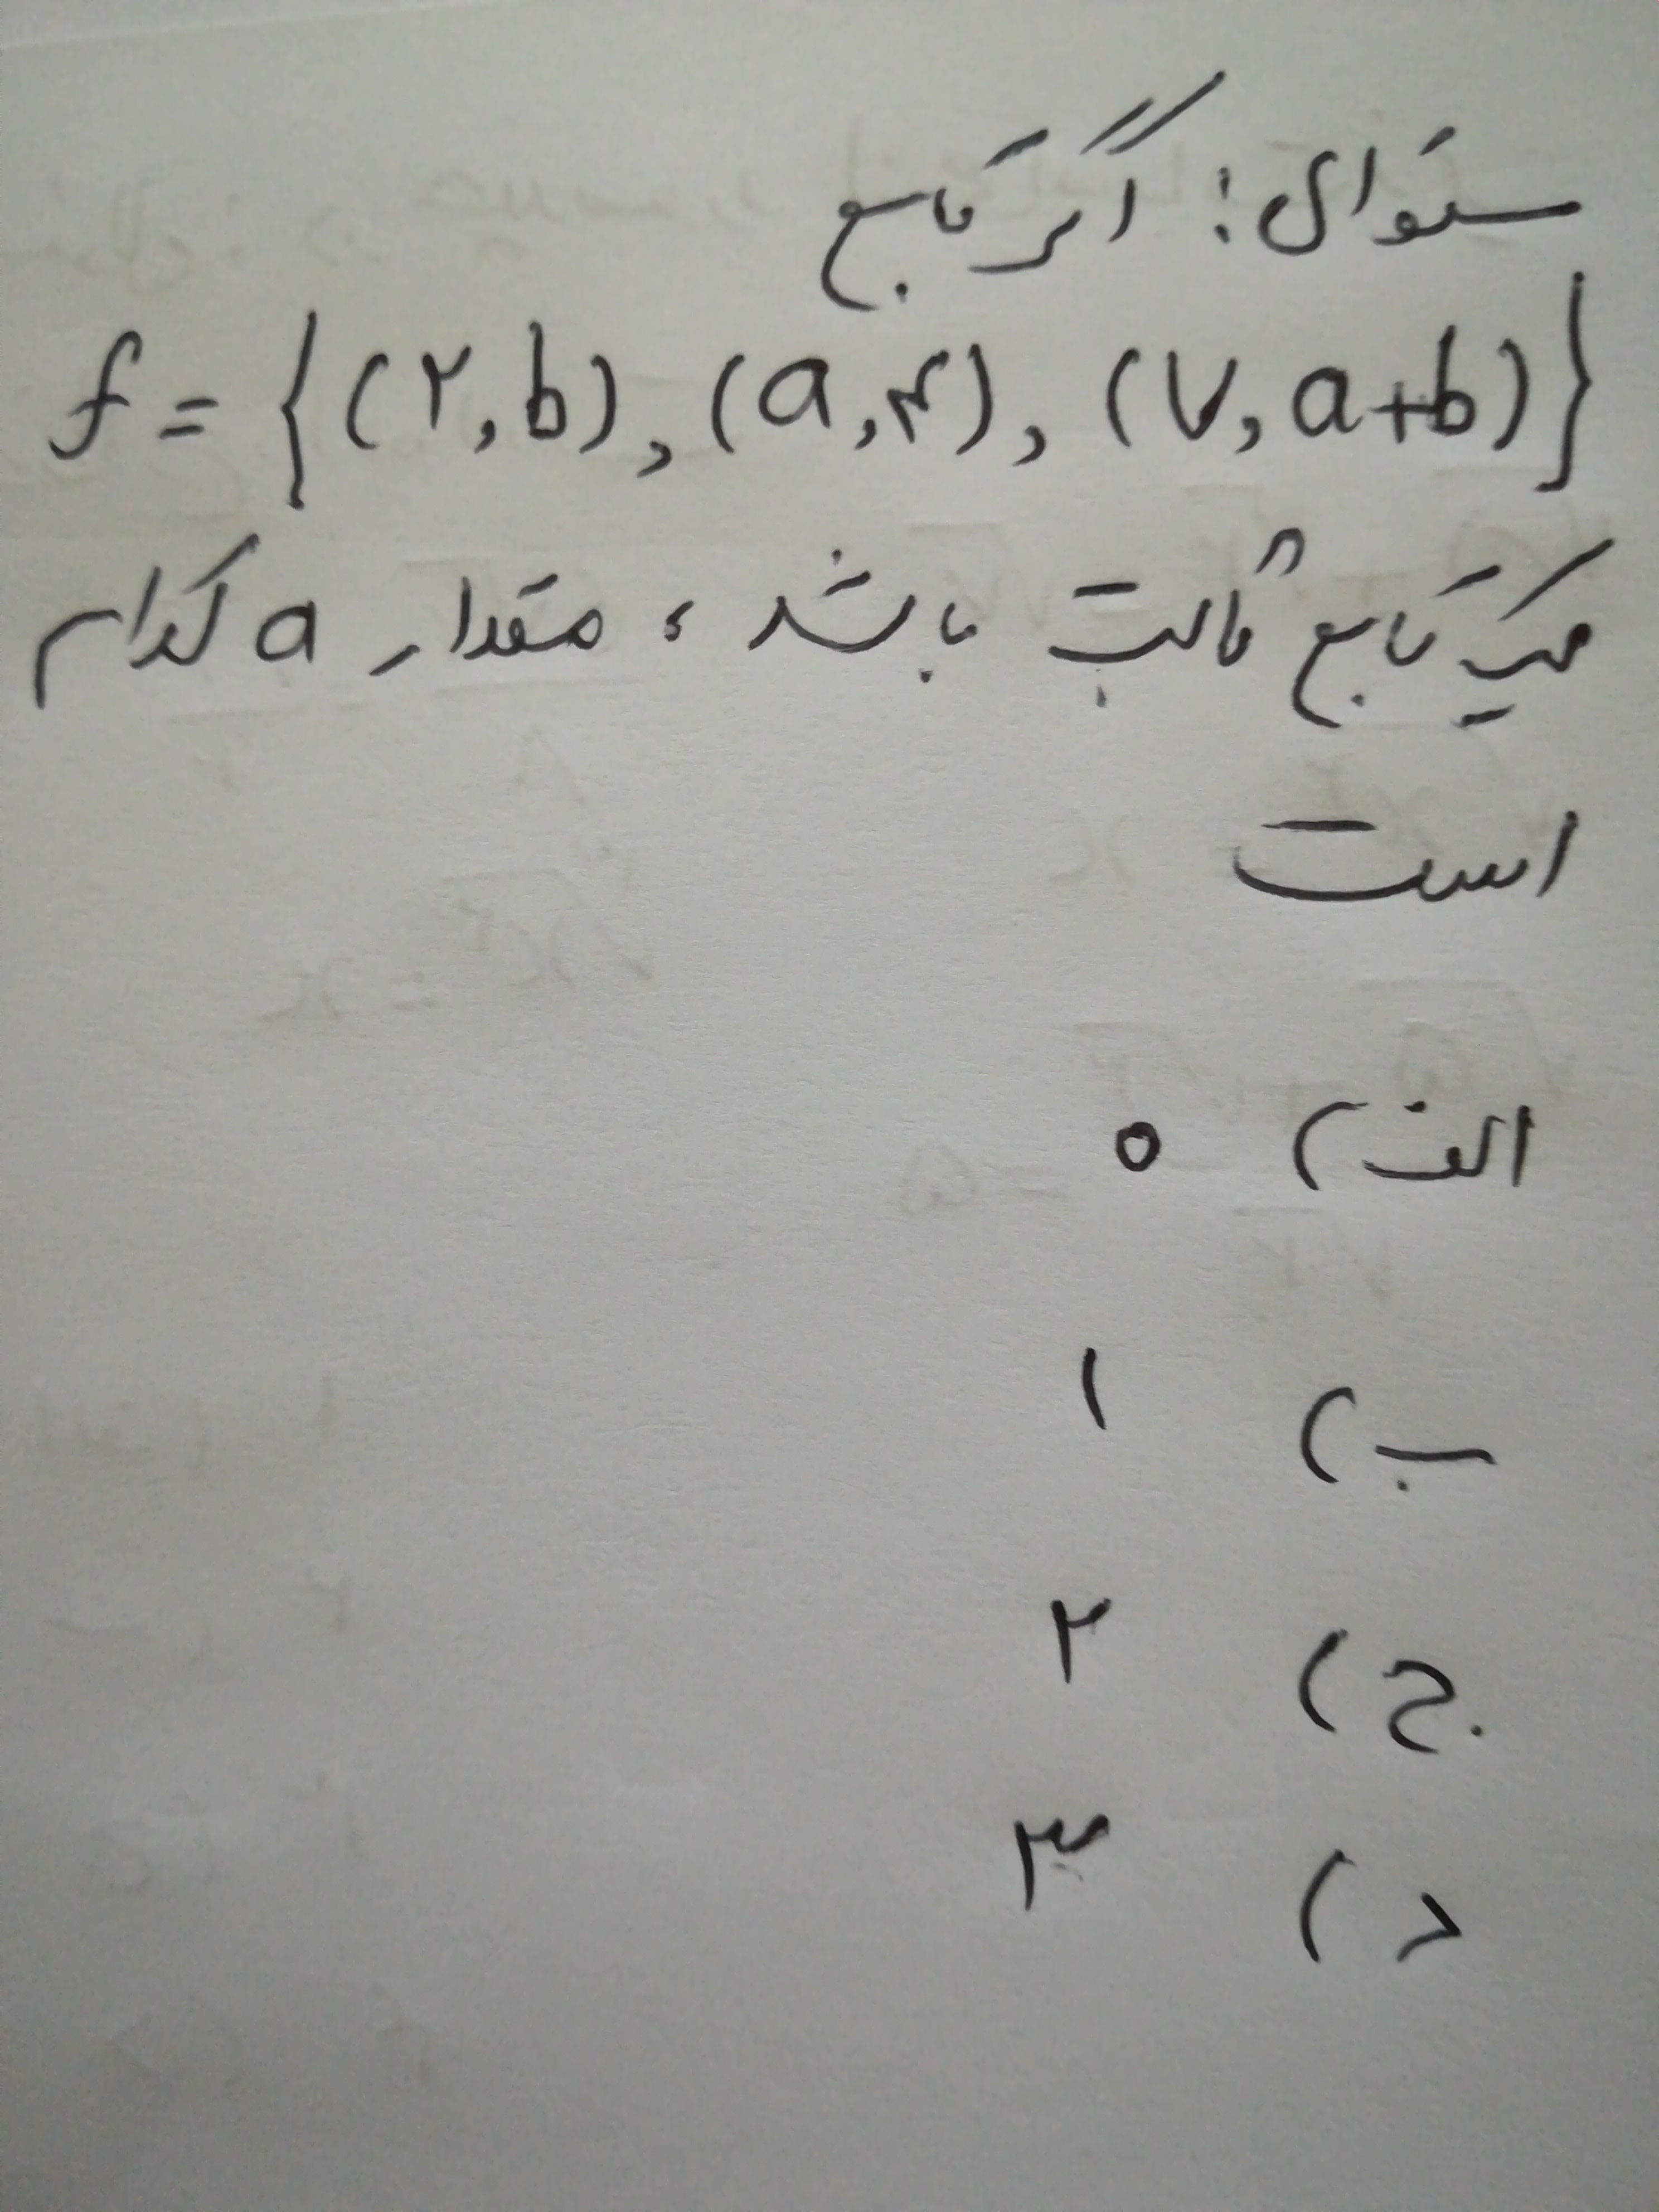 سئوال: اگر تابع
f = {(۲, b), (a, ۴), (۷, a+b)}
یک تابع ثابت باشد، مقدار a کدام
است
الف) ۰
ب) ۱
ج) ۲
د) ۳